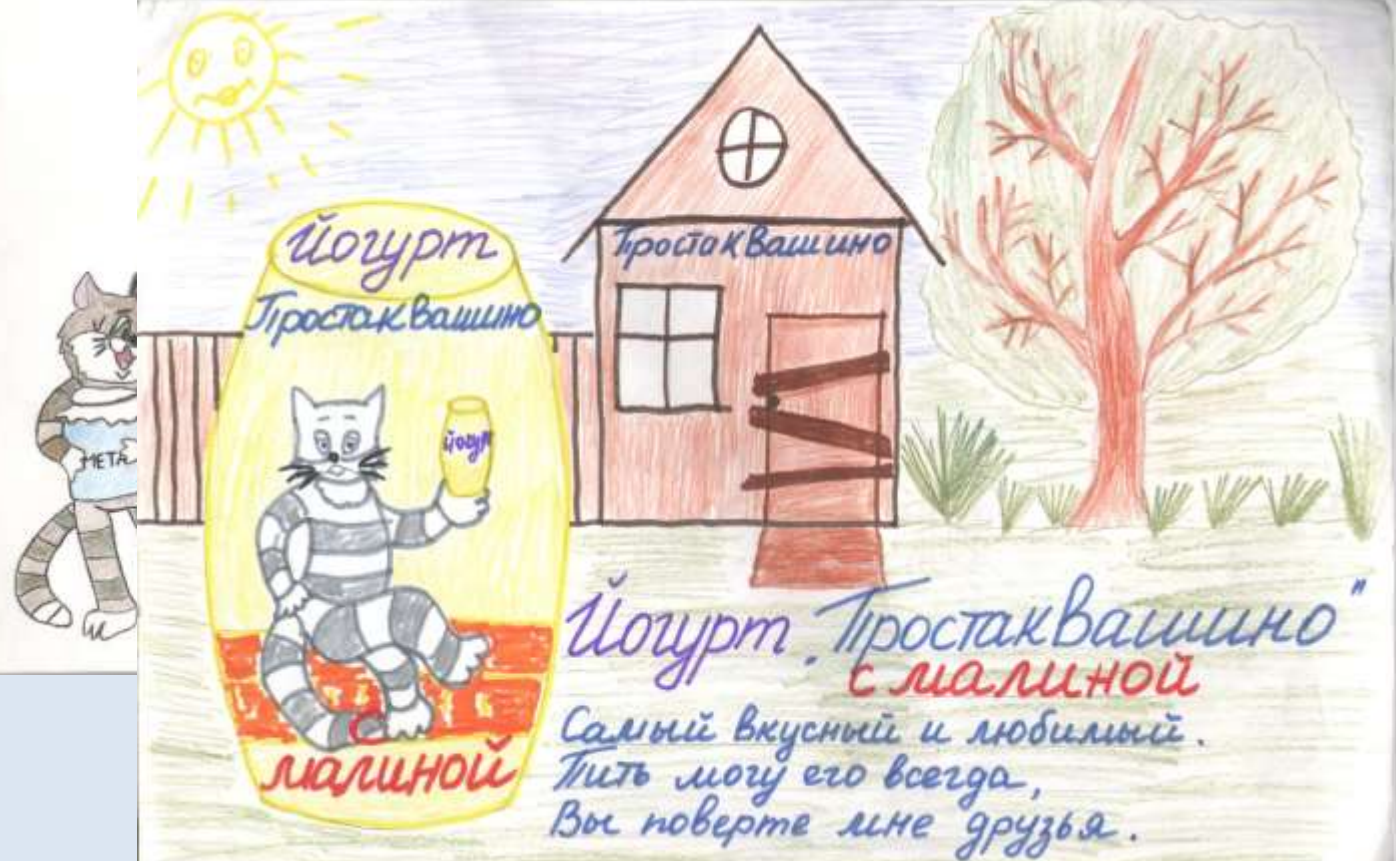 Йогурт
Простаквашино
йогурт
с
малиной
Простаквашино
МЕТА
Йогурт „Простаквашино"
с малиной
Самый вкусный и любимый.
Пить могу его всегда,
Вы поверте мне друзья.